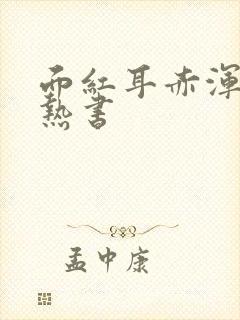 面紅耳赤渾
熱書
孟中康